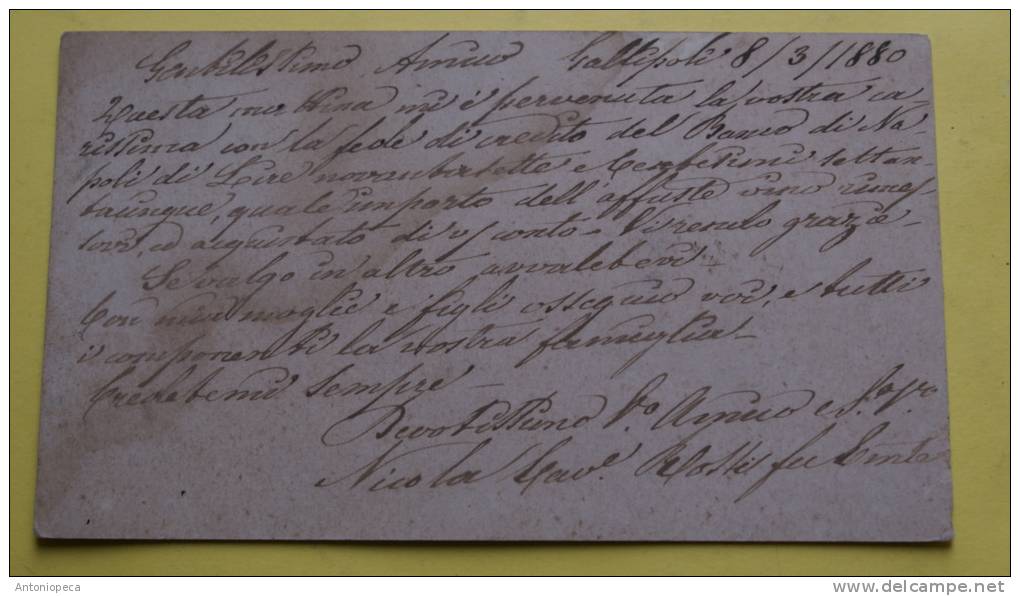 Gentilissimo Amico Gallipoli 8/3/1880
Questa mattina mi è pervenuta la vostra ca-
rissima con la fede di credito del Banco di Na-
poli di Lire novantasette e Centesimi settan-
tacinque, quale importo dell'affusto vino rimes-
sovi, ed acquistato di conto- Vi rendo grazie-
Se valgo in altro avvaletevi-
Con mia moglie e figli ossequio voi, e tutti
i componenti la vostra famiglia-
Credetemi sempre
Devotissimo Vo Amico e
Nicola Cavre Rossi fu
Antoniopeca
delcampe.net